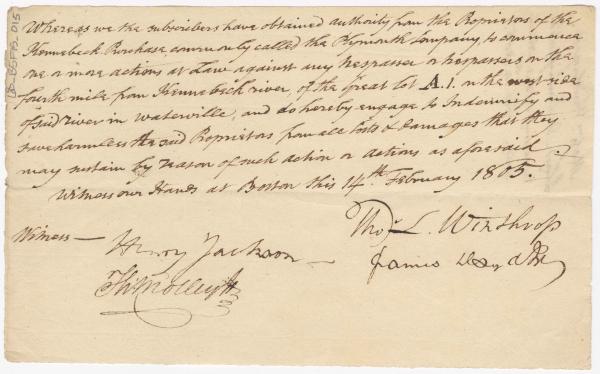 Whereas we the subscribers have obtained authority from the Proprietors of the
Kennebeck Purchase commonly called the Plymouth Company, to commence
one or more actions at Law against any trespasser or trespassers on the
fourth mile from Kennebeck river, of the great lot A.1. on the west side
of said river in Waterville, and do hereby engage to Indemnify and
save harmless the said Proprietors from all costs & damages that they
may sustain by reason of such action or actions as aforesaid.
Witness our Hands at Boston this 14th February 1805.
Witness
Thos L. Winthrop
Henry Jackson
James